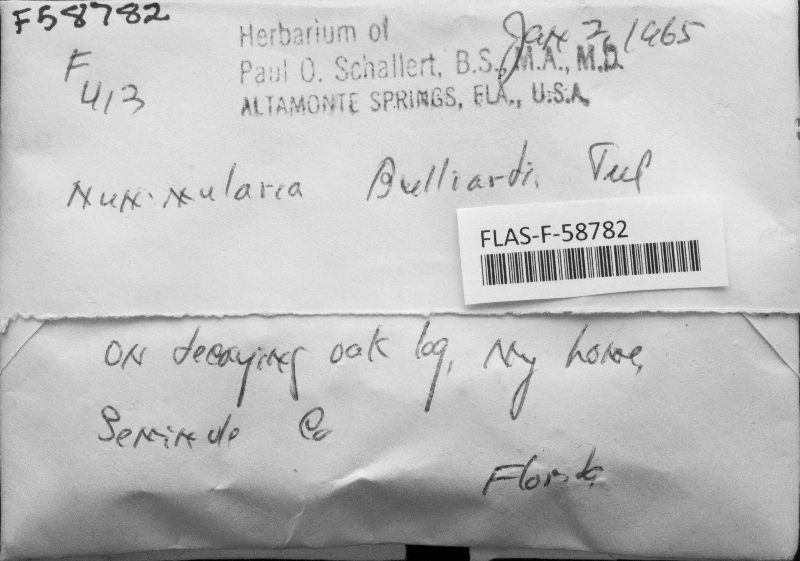 F58782
Jan 2, 1965
F
413
Herbarium of
Paul O. Schallert, B.S., M.A., M.D.
ALTAMONTE SPRINGS, FLA., U.S.A.
Nummularia Bulliardi. Tul
FLAS-F-58782
ON decaying oak log, My home,
Seminole Co
Florida